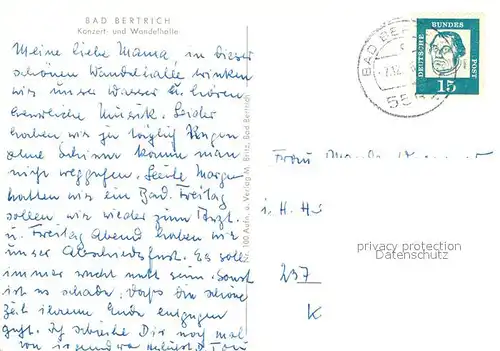 BAD BERTRICH
Konzert- und Wandelhalle
Meine liebe Mama, in dieser
schönen Wandelhalle trinken
wir unser Wasser u. hören
herrliche Musik. Leider
haben wir ja täglich Regen
ohne Schirm kann man
nicht weggehen. Heute Morgen
hatten wir ein Bad. Freitag
sollen wir wieder zum Arzt.
u. Freitag Abend haben wir
unser Abschiedsfest. Es soll
immer recht nett sein. Sonst
ist es schade, dass die schöne
Zeit ihrem Ende entgegen
geht. Ich schreibe Dir noch mal
von irgendwo
Nr. 100 Aufn. u. Verlag M. Britz, Bad Bertrich
BAD BER
555
DEUTSCHE BUNDES POST
15
Frau
i. H. Hs
privacy protection
Datenschutz
237
K